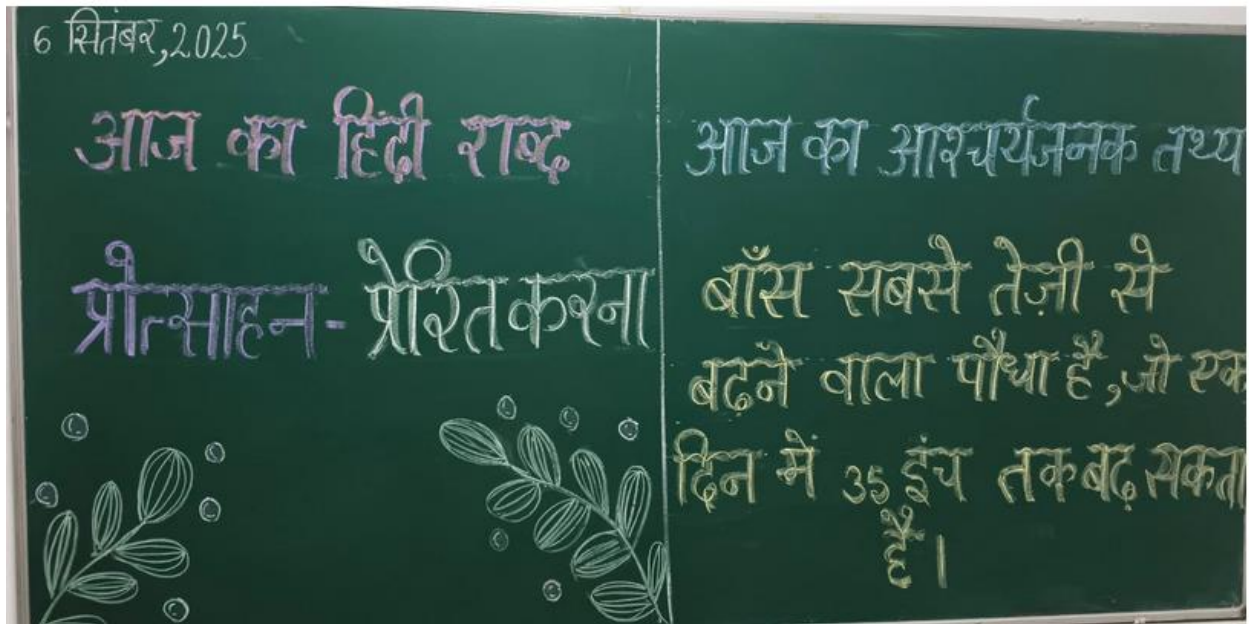 6 सितंबर,2025
आज का हिंदी शब्द
प्रोत्साहन- प्रेरित करना
आज का आश्चर्यजनक तथ्य
बाँस सबसे तेज़ी से
बढ़ने वाला पौधा है,जो एक
दिन में 35 इंच तक बढ़ सकता
है।